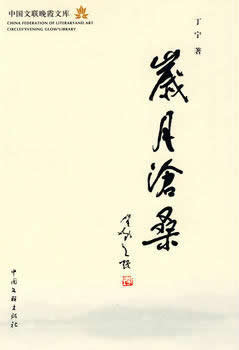 中国文联晚霞文库
CHINA FEDERATION OF LITERARY AND ART
CIRCLES'EVENING GLOW'LIBRARY
丁宁 著
歲月滄桑
中国文联出版社